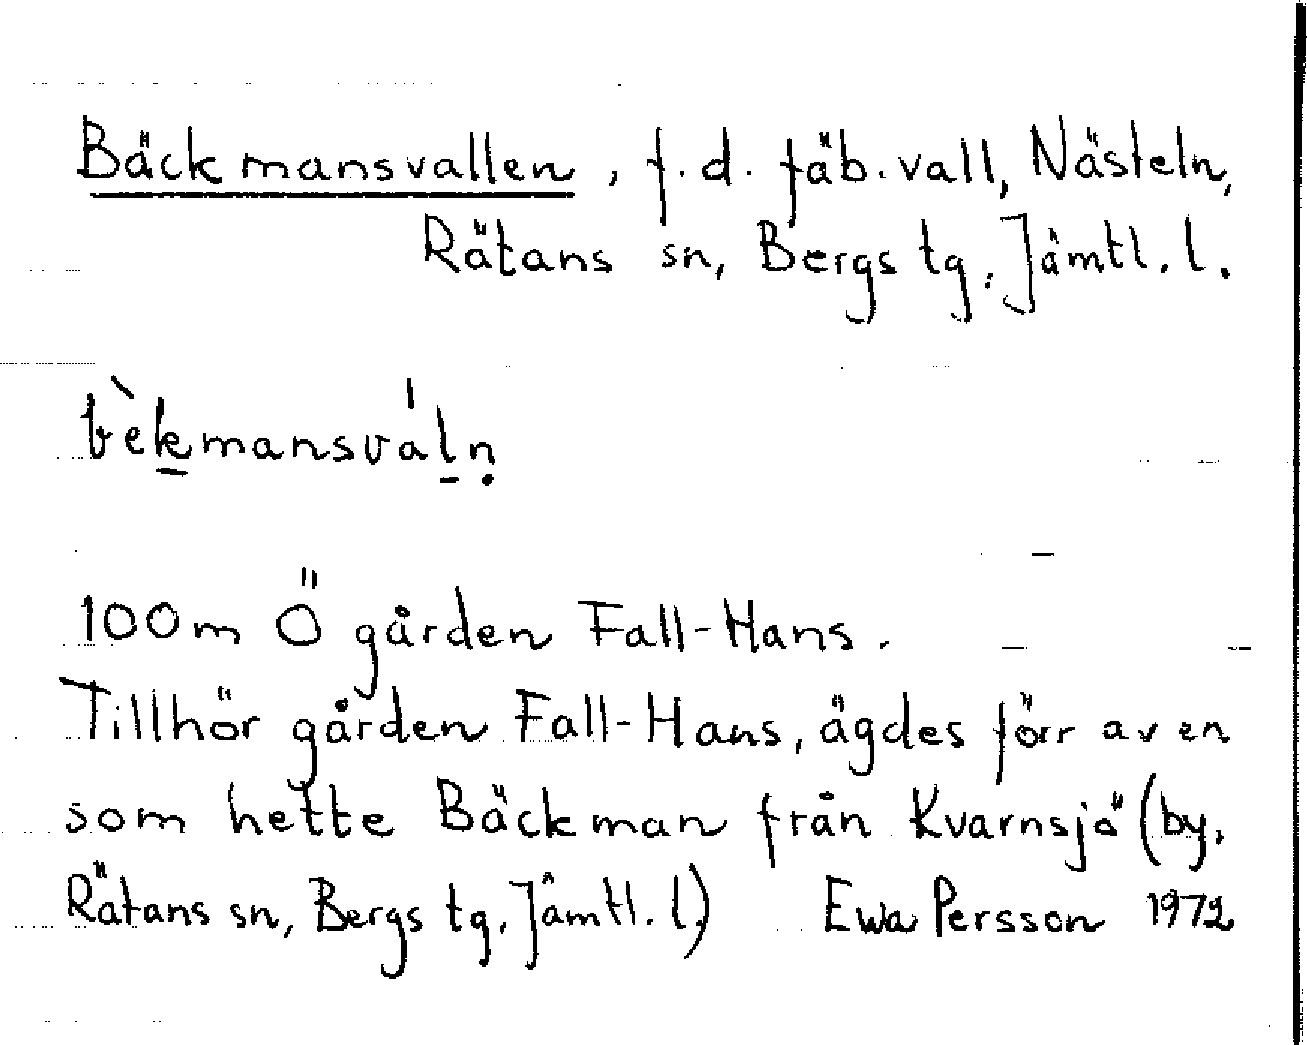 Bäckmansvallen, f.d. fäb.vall, Nästeln,
Rätans sn, Bergs tg, Jämtl. l.
bèk̲mansvál̲ṇ
100 m Ö gården Fall-Hans.
Tillhör gården Fall-Hans, ägdes förr av en
som hette Bäckman från Kvarnsjö (by,
Rätans sn, Bergs tg, Jämtl. l.) Ewa Persson 1972